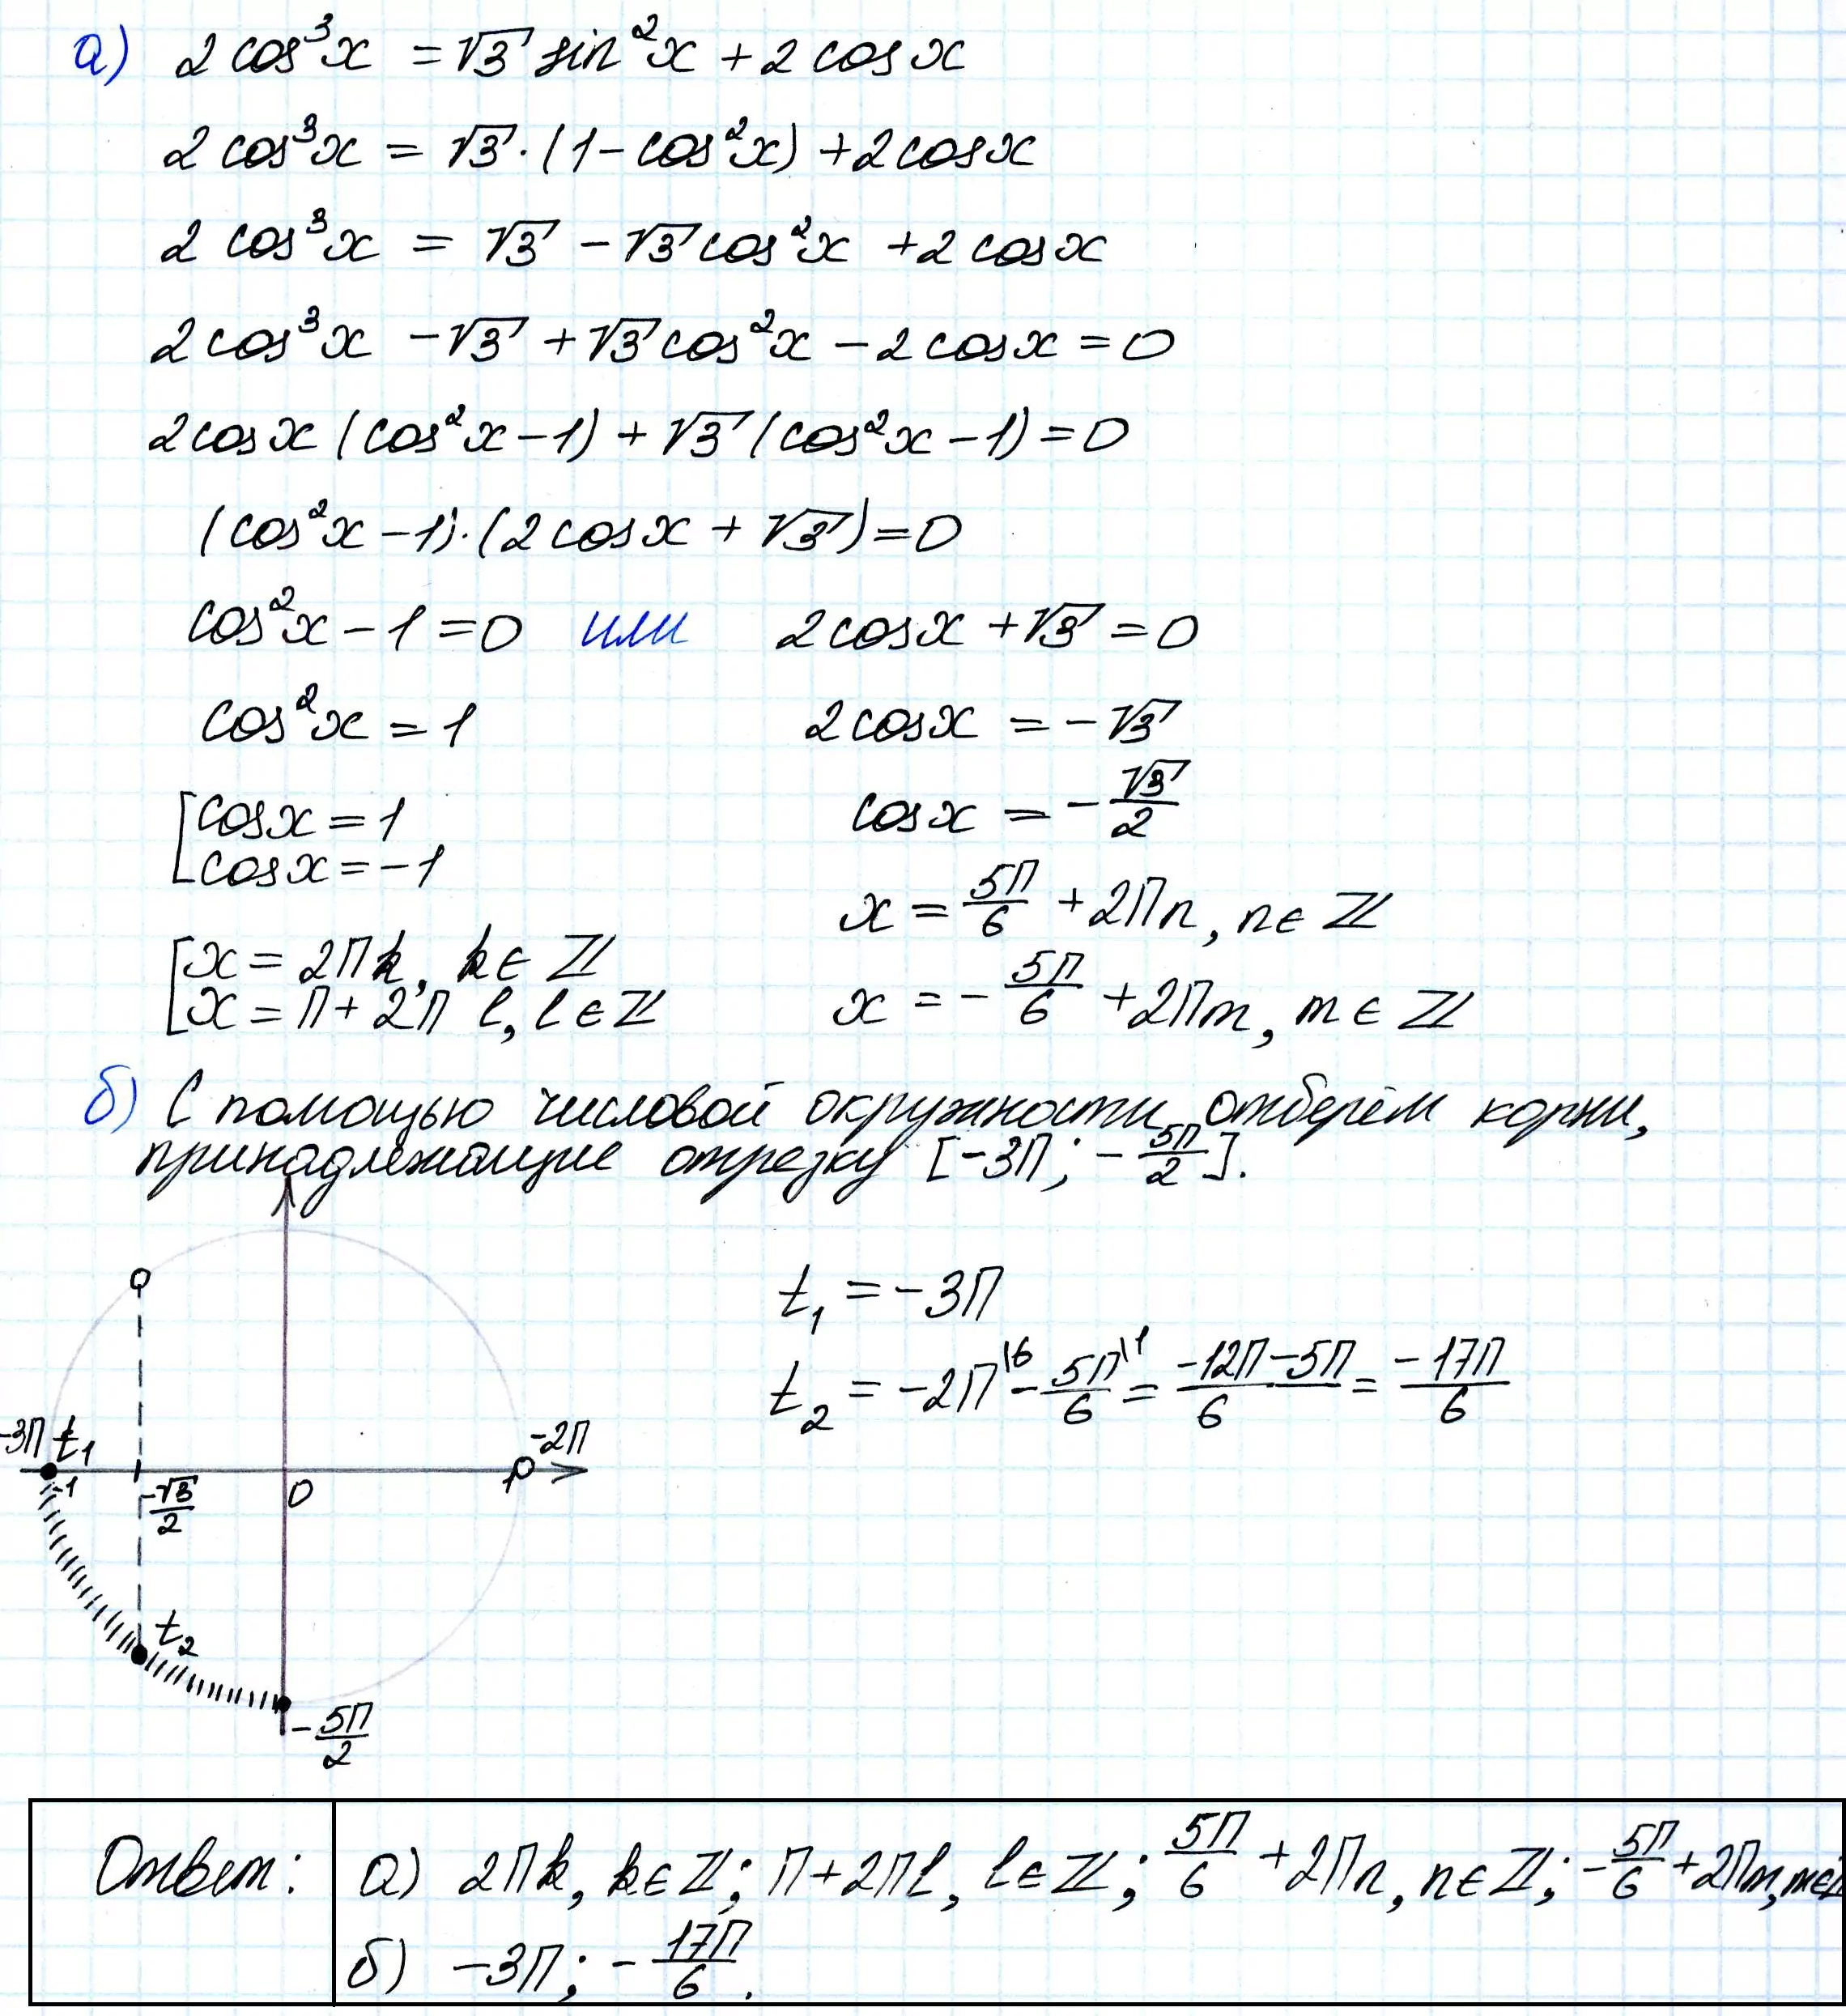 а) 2 cos³x = √3 sin²x + 2 cosx
2 cos³x = √3 · (1 - cos²x) + 2cosx
2 cos³x = √3 - √3 cos²x + 2 cosx
2 cos³x - √3 + √3 cos²x - 2 cosx = 0
2cosx (cos²x - 1) + √3 (cos²x - 1) = 0
(cos²x - 1) · (2 cosx + √3) = 0
cos²x - 1 = 0 или 2cosx + √3 = 0
cos²x = 1 2cosx = -√3
[cosx = 1
cosx = -1
cosx = -√3/2
x = 5П/6 + 2Пn, n ∈ ℤ
[x = 2Пk, k ∈ ℤ
x = П + 2П l, l ∈ ℤ
x = -5П/6 + 2Пm, m ∈ ℤ
б) С помощью числовой окружности отберём корни,
принадлежащие отрезку [-3П; -5П/2].
t₁ = -3П
t₂ = -2П\6 - 5П\1/6 = -12П-5П/6 = -17П/6
-3П t₁
-2П
-1
-√3/2
0
1
t₂
-5П/2
Ответ: а) 2Пk, k ∈ ℤ; П + 2Пl, l ∈ ℤ; 5П/6 + 2Пn, n ∈ ℤ; -5П/6 + 2Пm, m ∈ ℤ
б) -3П; -17П/6.